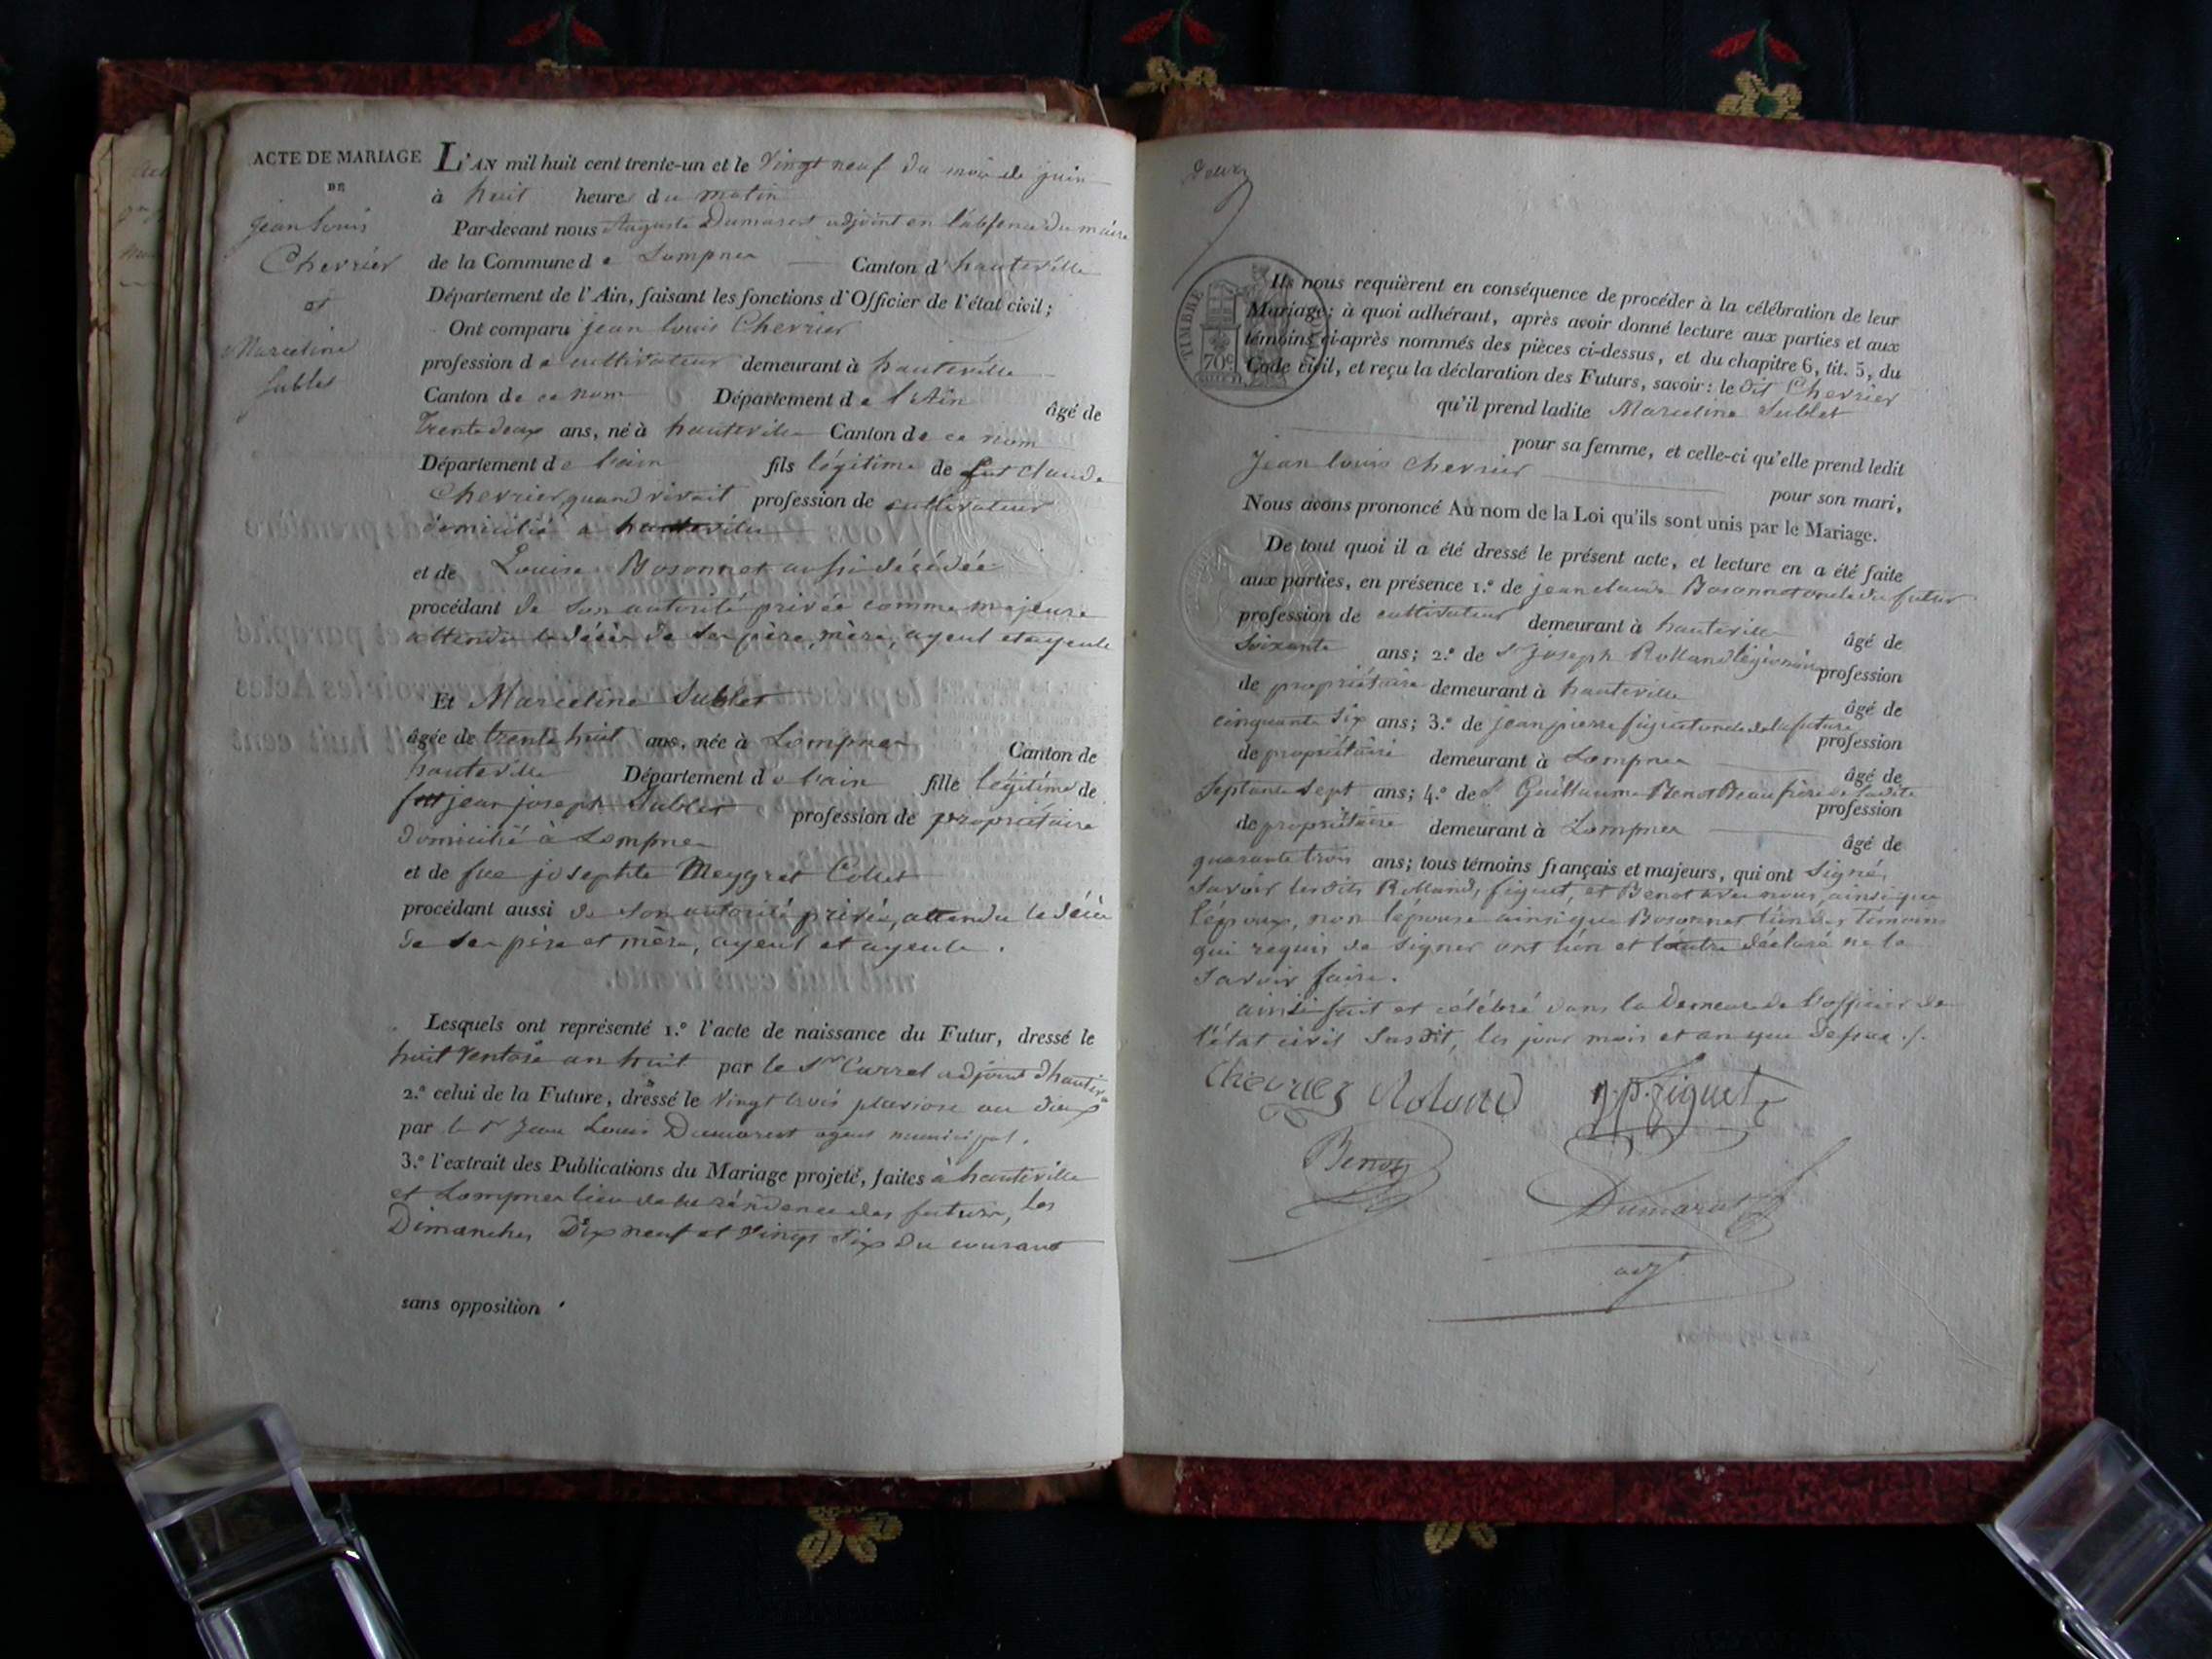 ACTE DE MARIAGE
DE
jean louis
Chevrier
et
Marceline
Sublet
L'AN mil huit cent trente-un et le Vingt neuf du mois de juin
à huit heures du matin
Par-devant nous Auguste Dumarest adjoint en l'absence du maire
de la Commune de Lompnes Canton d'hauteville
Département de l'Ain, faisant les fonctions d'Officier de l'état civil;
Ont comparu jean louis Chevrier
profession de cultivateur demeurant à hauteville
Canton de ce nom Département de l'Ain âgé de
trente deux ans, né à hauteville Canton de ce nom
Département de l'ain fils légitime de fut claude
Chevrier quand vivait profession de cultivateur
domicilié à hauteville
et de Louise Bosonnet aussi décédée
procédant de son autorité privée comme majeure
attendu le décès de ses père, mère, ayeul et ayeule
Et Marceline Sublet
âgée de trente huit ans, née à Lompnes Canton de
hauteville Département de l'ain fille légitime de
fut jean joseph Sublet profession de propriétaire
domicilié à Lompnes
et de fue josephte Meygret Collet
procédant aussi de son autorité privée, attendu le décès
de ses père et mère, ayeul et ayeule.
Lesquels ont représenté 1.° l'acte de naissance du Futur, dressé le
huit Ventose an huit par le Sr Carrel adjoint d'hautev.lle
2.° celui de la Future, dressé le vingt trois pluviose an deux
par le Sr Jean Louis Dumarest agent municipal.
3.° l'extrait des Publications du Mariage projeté, faites à hauteville
et Lompnes lieu de la résidence des futurs, les
Dimanches Dix neuf et Vingt Six du courant
sans opposition.
Deux
TIMBRE
70c
Ils nous requièrent en conséquence de procéder à la célébration de leur
Mariage; à quoi adhérant, après avoir donné lecture aux parties et aux
témoins ci-après nommés des pièces ci-dessus, et du chapitre 6, tit. 5, du
Code civil, et reçu la déclaration des Futurs, savoir: le dit Chevrier
qu'il prend ladite Marceline Sublet
pour sa femme, et celle-ci qu'elle prend ledit
Jean louis chevrier
pour son mari,
Nous avons prononcé Au nom de la Loi qu'ils sont unis par le Mariage.
De tout quoi il a été dressé le présent acte, et lecture en a été faite
aux parties, en présence 1.° de jean claude Bosonnet oncle du futur
profession de cultivateur demeurant à hauteville âgé de
Soixante ans; 2.° de Sr joseph Rolland légionnaire profession
de propriétaire demeurant à hauteville âgé de
cinquante six ans; 3.° de jean pierre figuet oncle de la future profession
de propriétaire demeurant à Lompnes âgé de
Septante Sept ans; 4.° de Sr Guillaume Benot Beaufrère de ladite profession
de propriétaire demeurant à Lompnes âgé de
quarante trois ans; tous témoins français et majeurs, qui ont Signé,
Savoir lesdits Rolland, figuet, et Benot avec nous, ainsi que
l'époux, non l'épouse ainsi que Bosonnet l'un des témoins
qui requis de signer ont l'un et l'autre déclaré ne le
Savoir faire.
ainsi fait et célébré dans la Demeure de l'officier de
l'état civil Susdit, les jour mois et an que dessus ./.
Chevrier Roland j.p. figuet
Benot
Dumarest
adj.